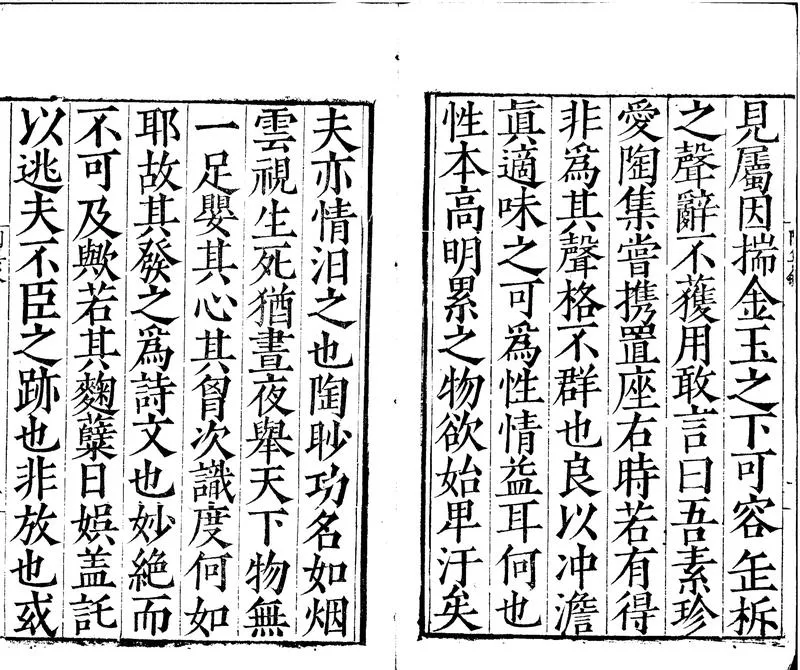 見屬因揣金玉之下可容缶柝
之聲辭不獲用敢言曰吾素珍
愛陶集嘗携置座右時若有得
非爲其聲格不群也良以冲澹
眞適味之可爲性情益耳何也
性本高明累之物欲始卑汙矣
夫亦情汩之也陶眇功名如烟
雲視生死猶晝夜舉天下物無
一足嬰其心其胷次識度何如
耶故其發之爲詩文也妙絶而
不可及歟若其麴蘖日娯盖託
以逃夫不臣之跡也非放也或